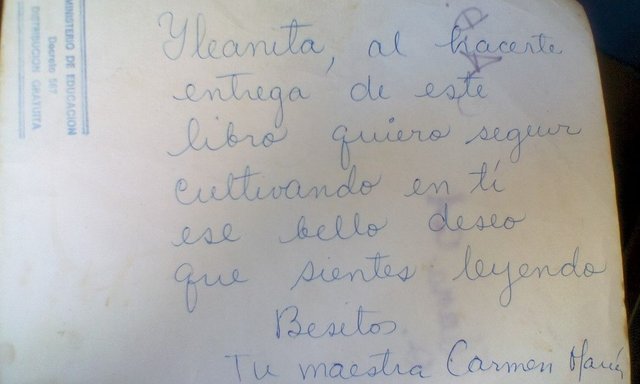 Yleanita, al hacerte
entrega de este
libro quiero seguir
cultivando en tí
ese bello deseo
que sientes leyendo
Besitos
Tu maestra Carmen María
MINISTERIO DE EDUCACION
Decreto 567
DISTRIBUCION GRATUITA